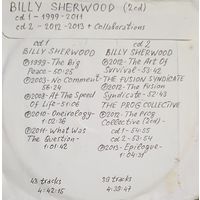 BILLY SHERWOOD (2cd)
cd 1 - 1999-2011
cd 2 - 2012-2013 + Collaborations
cd 1
BILLY SHERWOOD
1999 - The Big
Peace - 50:25
2003 - No Comment -
56:24
2008 - At the Speed
Of Life - 51:06
2010 - Oneirology -
1:02:36
2011 - What Was
The Question -
1:01:42
43 tracks
4:42:15
cd 2
BILLY SHERWOOD
2012 - The Art Of
Survival - 53:42
THE FUSION SYNDICATE
2012 - The Fusion
Syndicate - 52:43
THE PROG COLLECTIVE
2012 - The Prog
Collective (2cd) -
cd 1 - 54:55
cd 2 - 53:54
2013 - Epilogue -
1:04:31
tracks
4:39:47